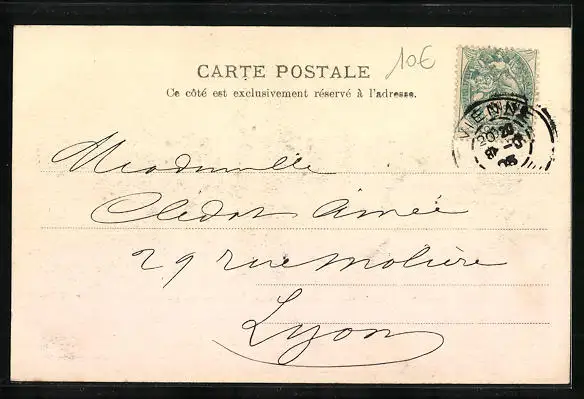 10€
CARTE POSTALE
Ce côté est exclusivement réservé à l'adresse.
VIENNE
Mademoiselle
Cledat Aimée
29 rue Molière
Lyon